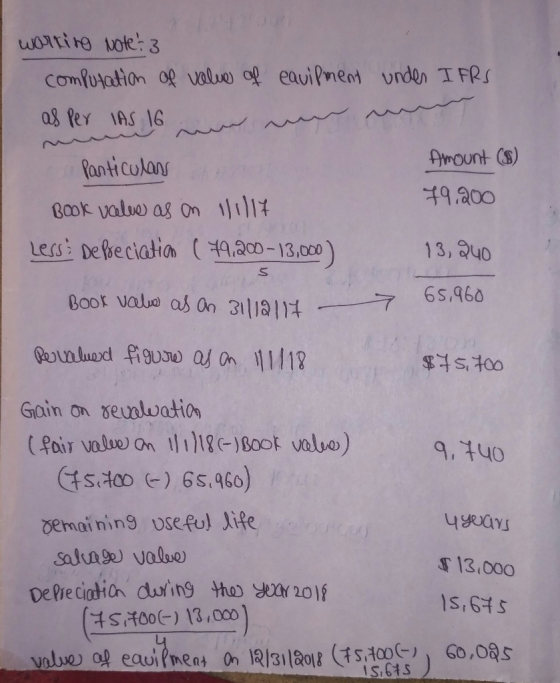 Working Note:- 3
Computation of value of equipment under IFRS
as per IAS 16
Particulars Amount ($)
Book value as on 1/1/17 79,200
Less: Depreciation (79,200-13,000) 13,240
5
Book value as on 31/12/17 → 65,960
Revalued figure as on 1/1/18 $75,700
Gain on revaluation
(fair value on 1/1/18 (-) Book value) 9,740
(75,700 (-) 65,960)
remaining useful life 4 years
salvage value $13,000
Depreciation during the year 2018 15,675
(75,700 (-) 13,000)
4
value of equipment on 12/31/2018 (75,700 (-) 60,025
15,675)